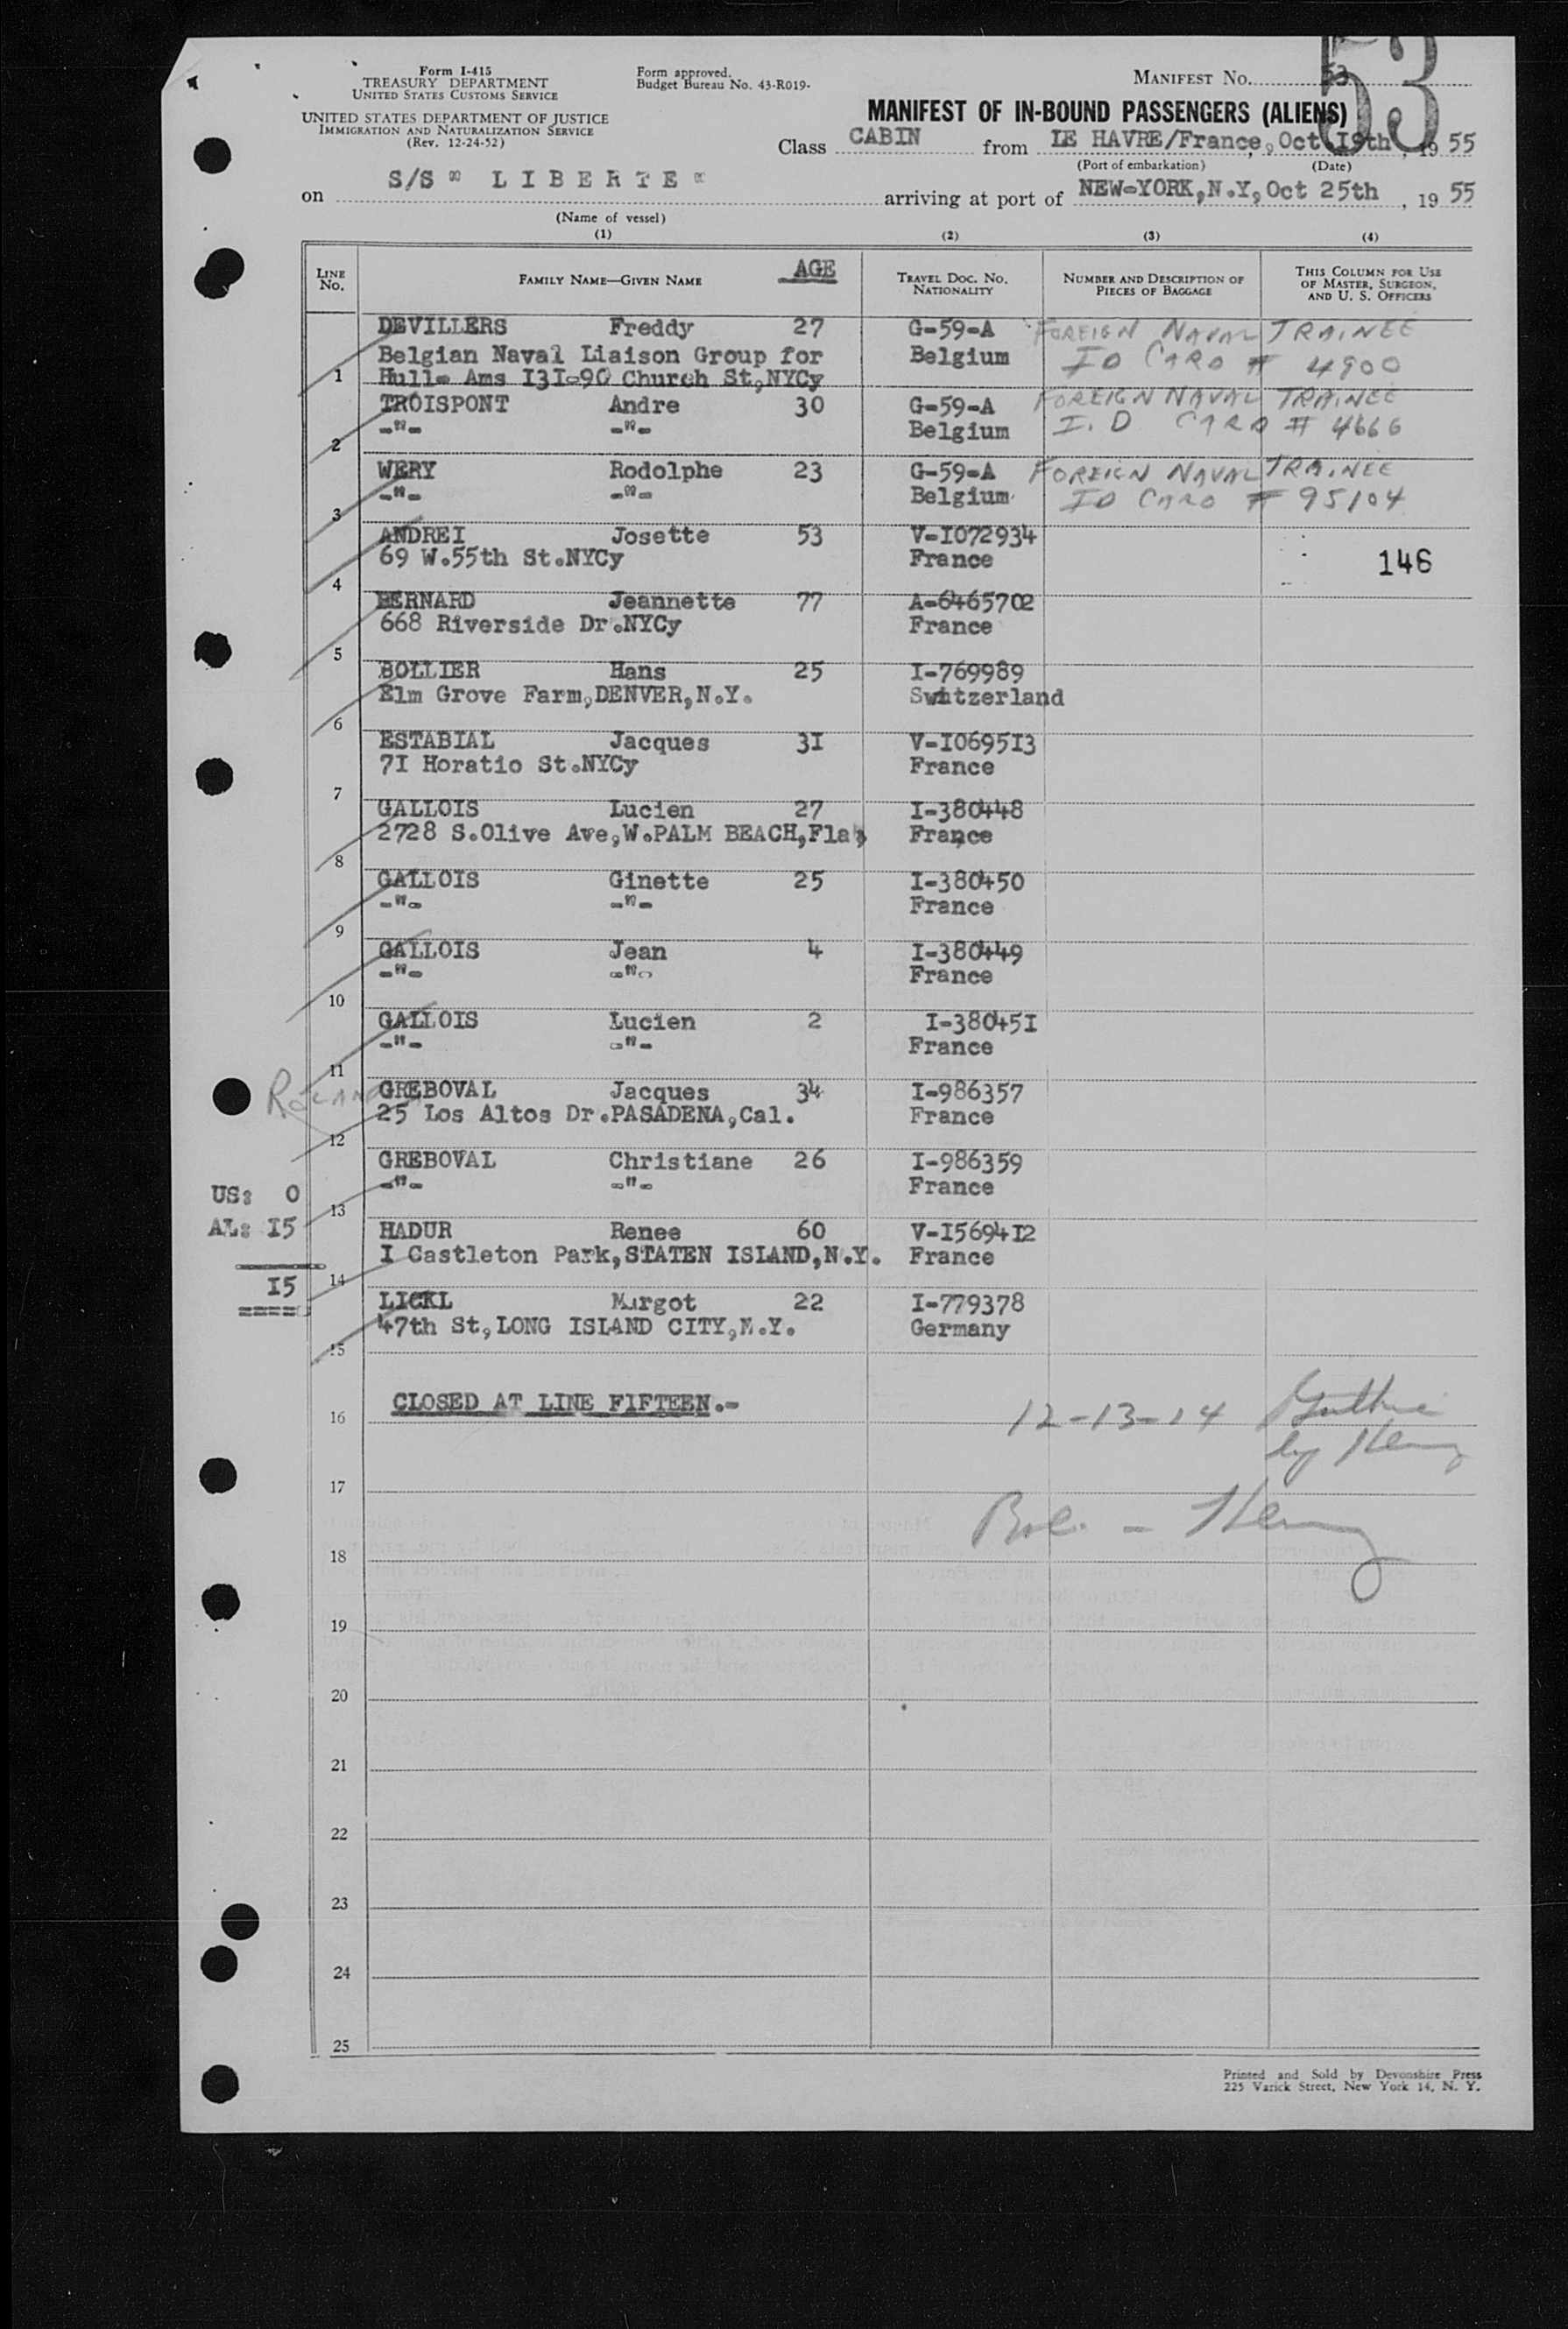 Form I-415
TREASURY DEPARTMENT
UNITED STATES CUSTOMS SERVICE
UNITED STATES DEPARTMENT OF JUSTICE
IMMIGRATION AND NATURALIZATION SERVICE
(Rev. 12-24-52)
Form approved.
Budget Bureau No. 43-R019-
MANIFEST NO. 53
53
MANIFEST OF IN-BOUND PASSENGERS (ALIENS)
Class CABIN from LE HAVRE/France, Oct I9th, 19 55
(Port of embarkation) (Date)
on S/S " L I B E R T E " arriving at port of NEW-YORK,N.Y, Oct 25th, 19 55
(Name of vessel)
(1) (2) (3) (4)
LINE NO. FAMILY NAME—GIVEN NAME AGE TRAVEL DOC. NO. NATIONALITY NUMBER AND DESCRIPTION OF PIECES OF BAGGAGE THIS COLUMN FOR USE OF MASTER, SURGEON, AND U. S. OFFICERS
DEVILLERS Freddy 27 G-59-A FOREIGN NAVAL TRAINEE
Belgian Naval Liaison Group for Belgium ID CARD # 4900
1 Hull- Ams I3I-90 Church St,NYCy
TROISPONT Andre 30 G-59-A FOREIGN NAVAL TRAINEE
2 -"- -"- Belgium I.D CARD # 4666
WERY Rodolphe 23 G-59-A FOREIGN NAVAL TRAINEE
3 -"- -"- Belgium ID CARD # 95104
ANDREI Josette 53 V-I072934
4 69 W.55th St.NYCy France 146
BERNARD Jeannette 77 A-6465702
5 668 Riverside Dr.NYCy France
BOLLIER Hans 25 I-769989
6 Elm Grove Farm,DENVER,N.Y. Switzerland
ESTABIAL Jacques 3I V-I0695I3
7 7I Horatio St.NYCy France
GALLOIS Lucien 27 I-380448
8 2728 S.Olive Ave,W.PALM BEACH,Fla, France
GALLOIS Ginette 25 I-380450
9 -"- -"- France
GALLOIS Jean 4 I-380449
10 -"- -"- France
GALLOIS Lucien 2 I-38045I
11 -"- -"- France
GREBOVAL Jacques 34 I-986357
12 25 Los Altos Dr.PASADENA,Cal. France
GREBOVAL Christiane 26 I-986359
13 -"- -"- France
US: 0
AL: I5
I5
HADUR Renee 60 V-I5694I2
14 I Castleton Park,STATEN ISLAND,N.Y. France
LICKL Margot 22 I-779378
15 47th St,LONG ISLAND CITY,N.Y. Germany
16 CLOSED AT LINE FIFTEEN.- 12-13-14
by
17
18
19
20
21
22
23
24
25
Printed and Sold by Devonshire Press
225 Varick Street, New York 14, N. Y.